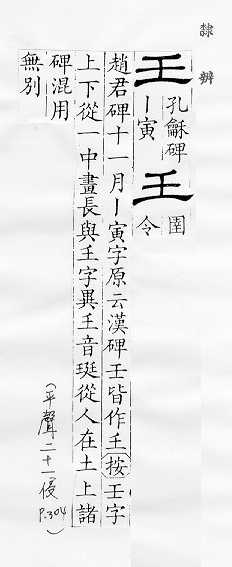 隸辨
王 孔龢碑
丨寅 王 圉
令
趙君碑十一月丨寅字原云漢碑壬皆作王按壬字
上下從一中畫長與𡈼字異𡈼音珽從人在土上諸
碑混用
無別
(平聲二十一侵
P.304)